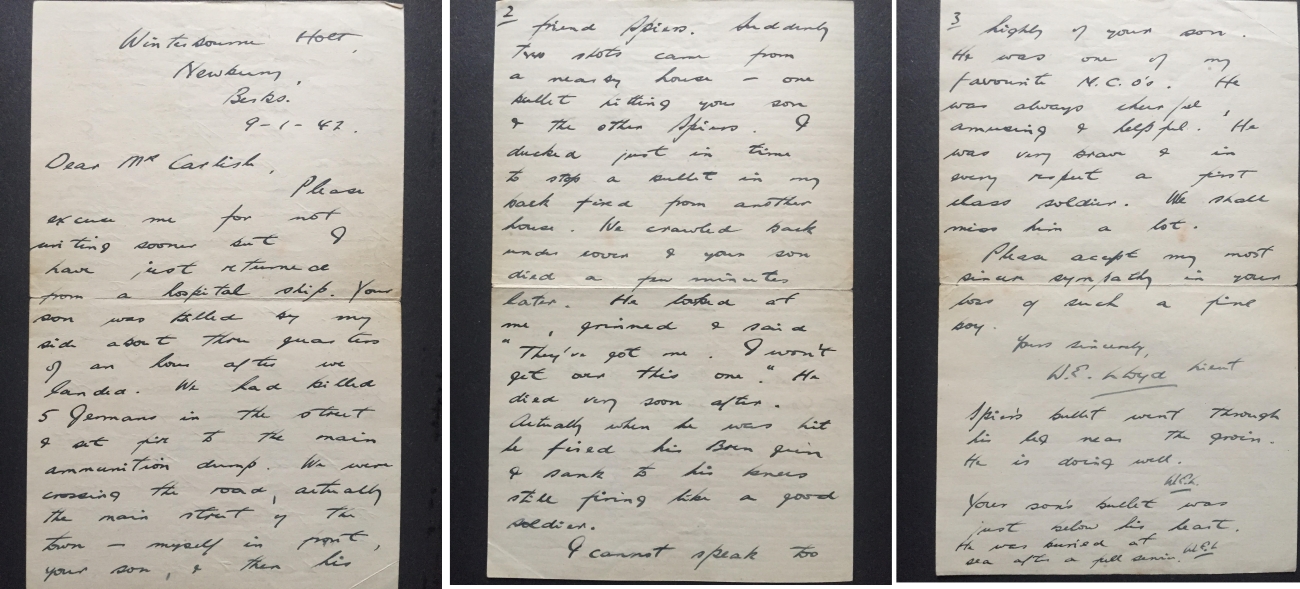 Winterbourne Holt,
Newbury,
Berks.
9-1-42.
Dear Mr Carlish,
Please
excuse me for not
writing sooner but I
have just returned
from a hospital ship. Your
son was killed by my
side about three quarters
of an hour after we
landed. We had killed
5 Germans in the street
& set fire to the main
ammunition dump. We were
crossing the road, actually
the main street of the
town – myself in front,
your son, & then his
2
friend Spiers. Suddenly
two shots came from
a nearby house – one
bullet hitting your son
& the other Spiers. I
ducked just in time
to stop a bullet in my
back fired from another
house. We crawled back
under cover & your son
died a few minutes
later. He looked at
me, grinned & said
"They've got me. I won't
get over this one." He
died very soon after.
Actually when he was hit
he fired his Bren gun
& sank to his knees
still firing like a good
soldier.
I cannot speak too
3
highly of your son.
He was one of my
favourite N.C.O's. He
was always cheerful,
amusing & helpful. He
was very brave & in
every respect a first
class soldier. We shall
miss him a lot.
Please accept my most
sincere sympathy in your
loss of such a fine
boy.
Yours sincerely,
W.E. Lloyd Lieut
Spiers bullet went through
his leg near the groin.
He is doing well.
W.E.L.
Your son's bullet was
just below his heart.
He was buried at
sea after a full service. W.E.L